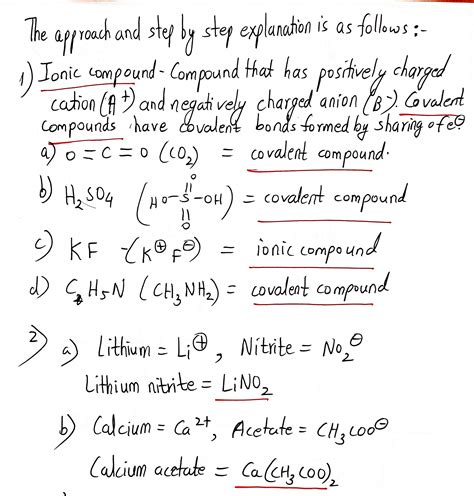 The approach and step by step explanation is as follows :-
1) Ionic compound - Compound that has positively charged
cation (A⁺) and negatively charged anion (B⁻). Covalent
compounds have covalent bonds formed by sharing of e⊖
a) O=C=O (CO₂) = covalent compound.
b) H₂SO₄ (HO-S-OH) = covalent compound
O
O
c) KF -(K⊕ F⊖) = ionic compound
d) C₂H₅N (CH₃NH₂) = covalent compound
2) a) Lithium = Li⊕, Nitrite = NO₂⊖
Lithium nitrite = LiNO₂
b) Calcium = Ca²⁺, Acetate = CH₃COO⊖
Calcium acetate = Ca(CH₃COO)₂